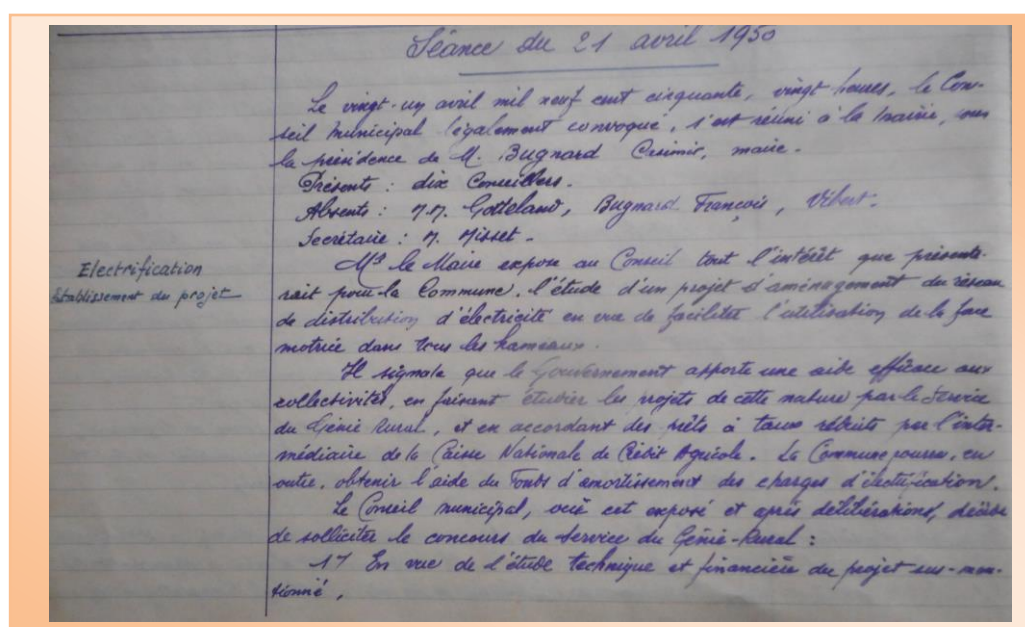 Séance du 21 avril 1950
Le vingt-un avril mil neuf cent cinquante, vingt heures, le Con-
seil Municipal légalement convoqué, s'est réuni à la Mairie, sous
la présidence de M. Bugnard Casimir, maire.
Présents : dix Conseillers.
Absents : M.M. Gotteland, Bugnard François, Vibert.
Secrétaire : M. Misset.
Electrification
Etablissement du projet
Mr le Maire expose au Conseil tout l'intérêt que présente-
rait pour la Commune, l'étude d'un projet d'aménagement du réseau
de distribution d'électricité en vue de faciliter l'utilisation de la force
motrice dans tous les hameaux.
Il signale que le Gouvernement apporte une aide efficace aux
collectivités, en faisant étudier les projets de cette nature par le Service
du Génie Rural, et en accordant des prêts à taux réduits par l'inter-
médiaire de la Caisse Nationale de Crédit Agricole. La Commune pourra, en
outre, obtenir l'aide du Fonds d'amortissement des charges d'électrification.
Le Conseil municipal, ouï cet exposé et après délibérations, décide
de solliciter le concours du Service du Génie-Rural :
1° En vue de l'étude technique et financière du projet sus-men-
tionné,